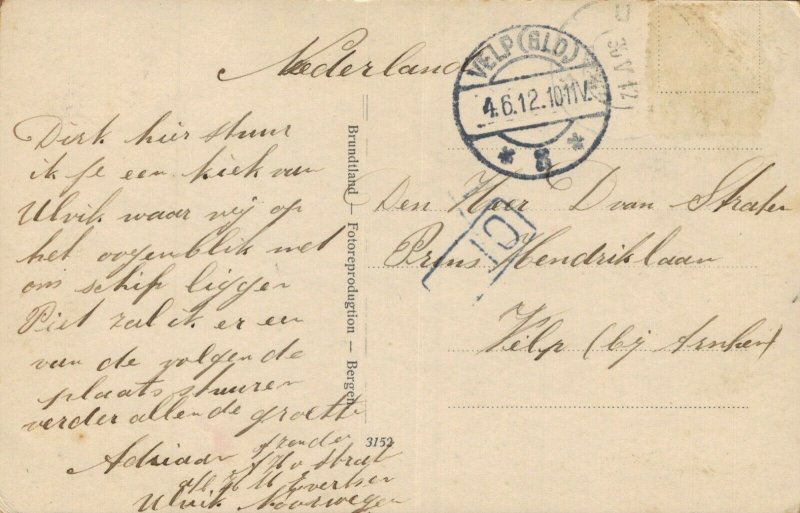 Nederland
VELP (GLD)
4.6.12.10-11V.
* 3 *
30 V 12
Dirk hier stuur
ik je een kiek van
Ulvik waar wij op
het oogenblik met
ons schip liggen
Piet zal ik er een
van de volgende
plaats sturen
verder allen de groete
Adriaan
afzender
A H v Strat
a/b Hr M Evertsen
Ulvik Noorwegen
Brundtland — Fotoreprodugtion — Bergen
3152
Den Heer D van Straten
Prins Hendriklaan
Velp (bij Arnhem)